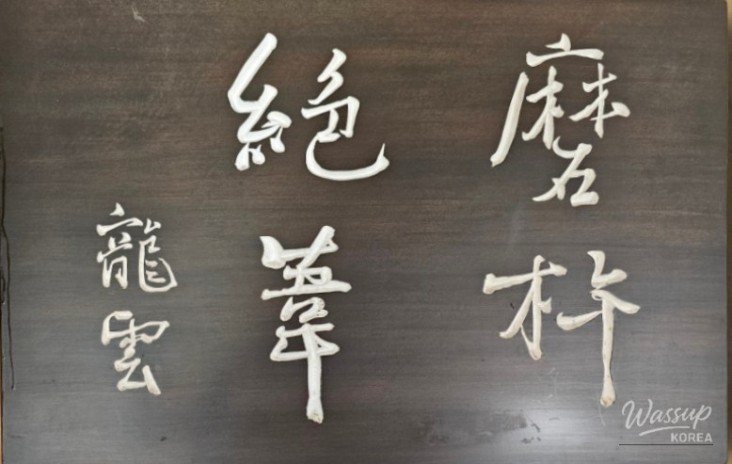 磨杵
絕韋
龍雲
Wassup
KOREA